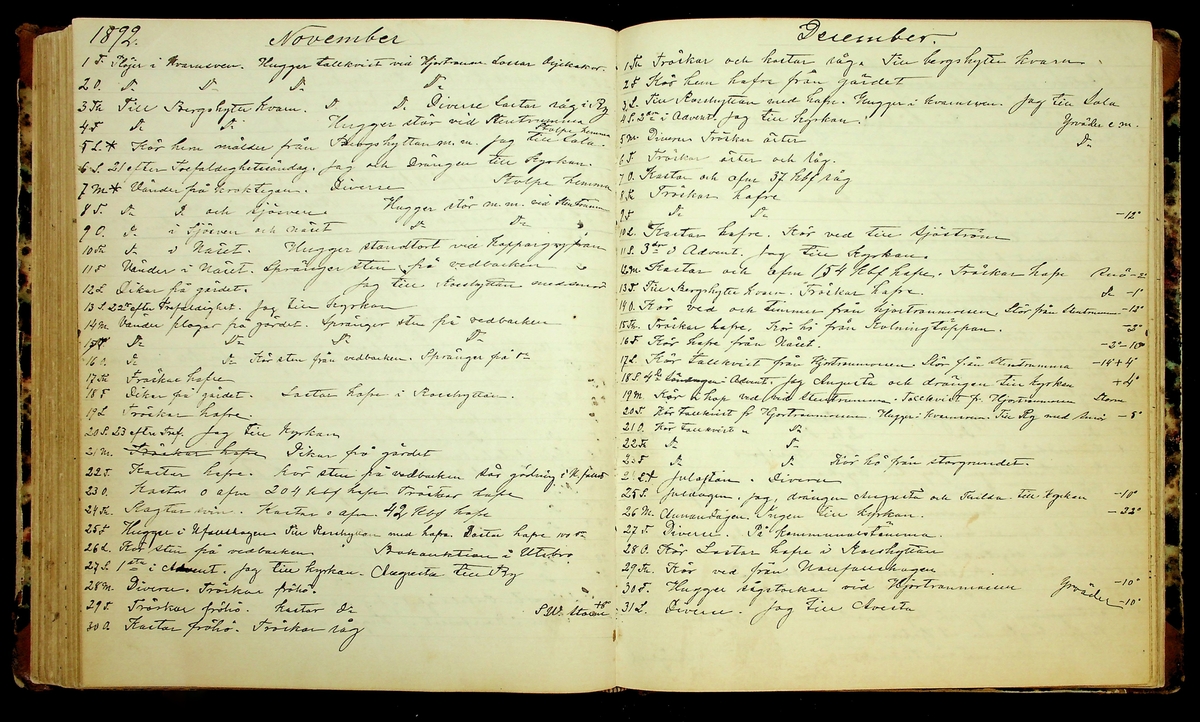 1892. November
1 T. Plöjer i Kvarnsven. Hugger tallkvist vid Hjortronm. Lassar
2 O. D:o D:o D:o D:o
3 Th Till Bergshytte kvarn. D:o D:o Diverse Lastar råg i By
4 F D:o D:o Hugger stör vid Stentrumma
5 L * Kör hem målder från Bergshyttan m.m. jag till Sala. Stolpe hemma
6 S. 21 efter Trefaldighetsöndag. Jag och Drängen till Kyrkan.
7 M * Vänder på kroktegan. Diverse Stolpe hemma
8 T. D:o D:o och sjösven Hugger stör m.m. vid Stentrumman
9 O. D:o i Sjösven och Näset D:o D:o
10 Th D:o i Näset. Hugger standtort vid
11 F Vänder i Näset. Spränger sten på vedbacken
12 L Dikar på gärdet. Jag till Rosshyttan med smör
13 S. 22 efter Trefaldighet. Jag till Kyrkan
14 M. Vänder plogar på gärdet. Spränger sten på vedbacken
15 T D:o D:o D:o D:o
16 O. D:o D:o Kör sten från vedbacken. Spränger på d:o
17 Th Tröskar hafre
18 F Dikar på gärdet. Lastar hafre i Rosshyttan.
19 L Tröskar hafre.
20 S. 23 efter Tref. Jag till Kyrkan
21 M. Tröskar hafre Dikar på gärdet
22 T. Kastar hafre. Kör sten på vedbacken
23 O. Kastar o afm 204 kbf hafre Tröskar hafre
24 Th. Slagtar svin. Kastar o afm. 42 kbf hafre
25 F Hugger i Till Rosshyttan med hafre. Lastar hafre 100 t:r
26 L. Kör sten på vedbacken Stockauktion i
27 S. 1sta i Advent. Jag till kyrkan. Augusta till By
28 M. Diverse. Tröskar fröhö.
29 T. Tröskar fröhö. Kastar D:o S.W. storm +5°
30 O. Kastar fröhö. Tröskar råg
December.
1 Th Tröskar och kastar råg. Till bergshytte kvarn.
2 F Kör hem hafre från gärdet
3 L. Till Rosshyttan med hafre. Hugger i kvarnsven. Jag till Sala
4 S. 2dra i Advent. Jag till Kyrkan. Yrväder e.m.
5 M. Diverse Tröskar ärter D:o
6 T. Tröskar ärter och råg.
7 O. Kastar och afm 37 kbf råg
8 Th Tröskar hafre
9 F D:o D:o -12°
10 L. Kastar hafre. Kör ved till Sjöström
11 S. 3dje i Advent. Jag till Kyrkan.
12 M. Kastar och afm 154 kbf hafre. Tröskar hafre Snö -2°
13 T. Till Bergshytte kvarn. Tröskar hafre D:o -1°
14 O. Kör ved och timmer från hjortronmossen Stör från Stentrumm -12°
15 Th. Tröskar hafre. Kör hö från Kolningtäppan. -3°
16 F. Kör hafre från Näset. -3° -10°
17 L. Kör tallkvist från Hjortronmossen Stör från Stentrumma -14 +4°
18 S. 4de söndagen i Advent. Jag Augusta och drängen till kyrkan +4°
19 M. Kör i hop ved vid Stentrumma. Tallkvist fr. Hjortronmossen Storm
20 T. Kör tallkvist fr Hjortronmossen Hugger i Kvarnsven. Till By med Smör -5°
21 O. Kör tallkvist D:o
22 Th D:o D:o
23 F D:o D:o Kör hö från storgrundet.
24 L * Julafton. Diverse
25 S. Juldagen. jag, drängen Augusta och Hilda till kyrkan -10°
26 M. Annandagen. Ingen till kyrkan. -22°
27 T. Diverse. På Kommunalstämma.
28 O. Kör Lastar hafre i Rosshyttan
29 Th. Kör ved från
30 F. Hugger sågstockar vid Hjortronmossen Yrväder -10°
31 L. Diverse. Jag till Avesta -10°